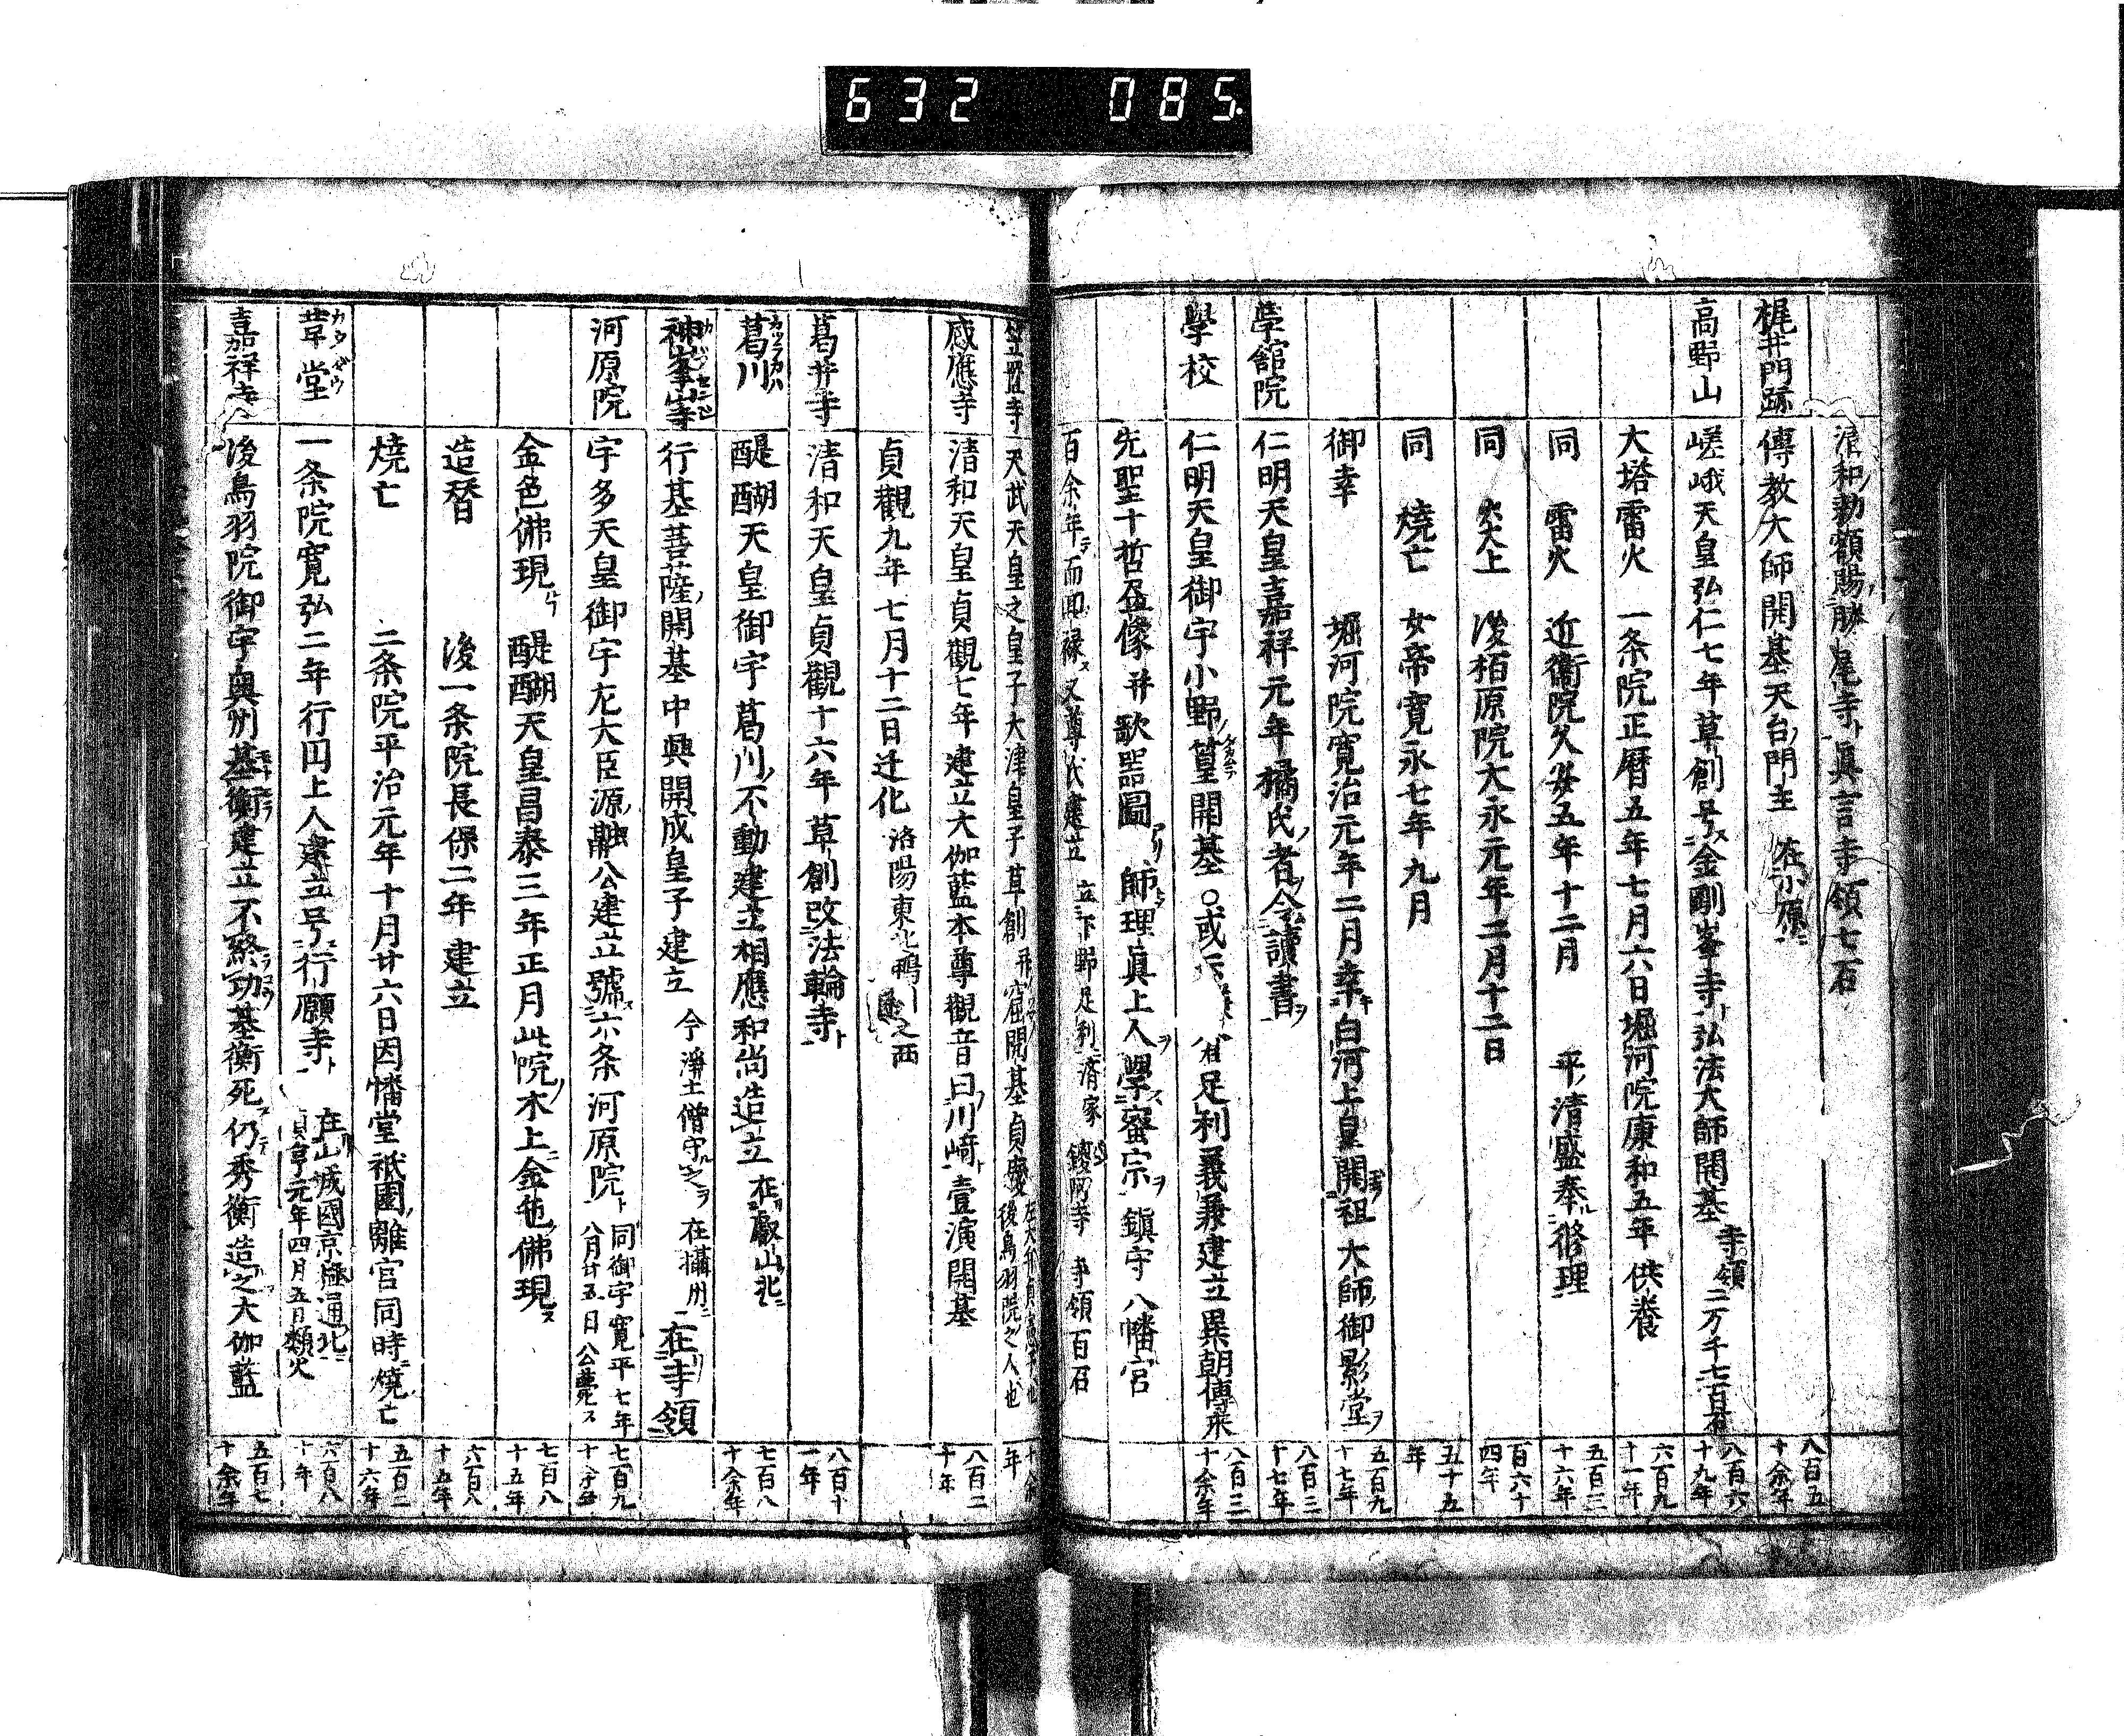 632 085
清和勅額賜勝尾寺ト眞言寺領七石
梶井門跡 傳教大師開基天台ノ門主 在小原ニ 八百五十余年
高野山 嵯峨天皇弘仁七年草創号ス金剛峯寺ト弘法大師開基 寺領二万千七百石 八百六十九年
大塔雷火 一条院正暦五年七月六日堀河院康和五年供養 六百九十一年
同 雷火 近衞院久安五年十二月 平ノ清盛奉ル修理 五百三十六年
同 炎上 後栢原院大永元年二月十二日 百六十四年
同 燒亡 女帝寛永七年九月 五十五年
御幸 堀河院寛治元年二月幸ス白河上皇開祖大師御影堂ヲ 五百九十七年
學館院 仁明天皇嘉祥元年橘氏ノ者ヲ令讀書ヲ 八百三十七年
學校 仁明天皇御宇小野ノ篁開基○或云 足利義兼建立異朝傳來 八百三十余年
先聖十哲畫像并歌器圖アリ師理眞上人ヲ學ス密宗ヲ鎮守八幡宮
百余年ニ而 又尊氏建立 立下野足利ニ済家 鑁阿寺 寺領百石
天武天皇之皇子大津皇子草創 開基貞慶 後鳥羽院之人也
感應寺 清和天皇貞觀七年建立大伽藍本尊觀音曰川﨑ト壹演開基 八百二十年
貞觀九年七月十二日迁化 洛陽東北鴨川 之西
葛井寺 清和天皇貞觀十六年草創改法輪寺ト 八百十一年
葛川 カツラカハ 醍醐天皇御宇葛川ノ不動建立相應和尚造立 在叡山北ニ 七百八十余年
神峯山寺 行基菩薩ノ開基中興開成皇子建立 今浄土僧守之ヲ 在攝州ニ 在寺領
河原院 宇多天皇御宇左大臣源ノ融公建立號ス六条河原院ト 同御宇寛平七年八月廿五日公薨ス 七百九十年
金色佛現 醍醐天皇昌泰三年正月此院ノ木上ニ金色ノ佛現ス 七百八十五年
造替 後一条院長保二年建立 六百八十五年
燒亡 二条院平治元年十月廿六日因幡堂祇園ノ離宮同時ニ燒亡 五百二十六年
革堂 カウダウ 一条院寛弘二年行円上人建立号行願寺ト 在山城國京極通北ニ 貞享元年四月五日類火 六百八十年
嘉祥寺 後鳥羽院御宇奥州ノ基衡建立不終功ヲ基衡死ス仍テ秀衡造之大伽藍 五百七十余年